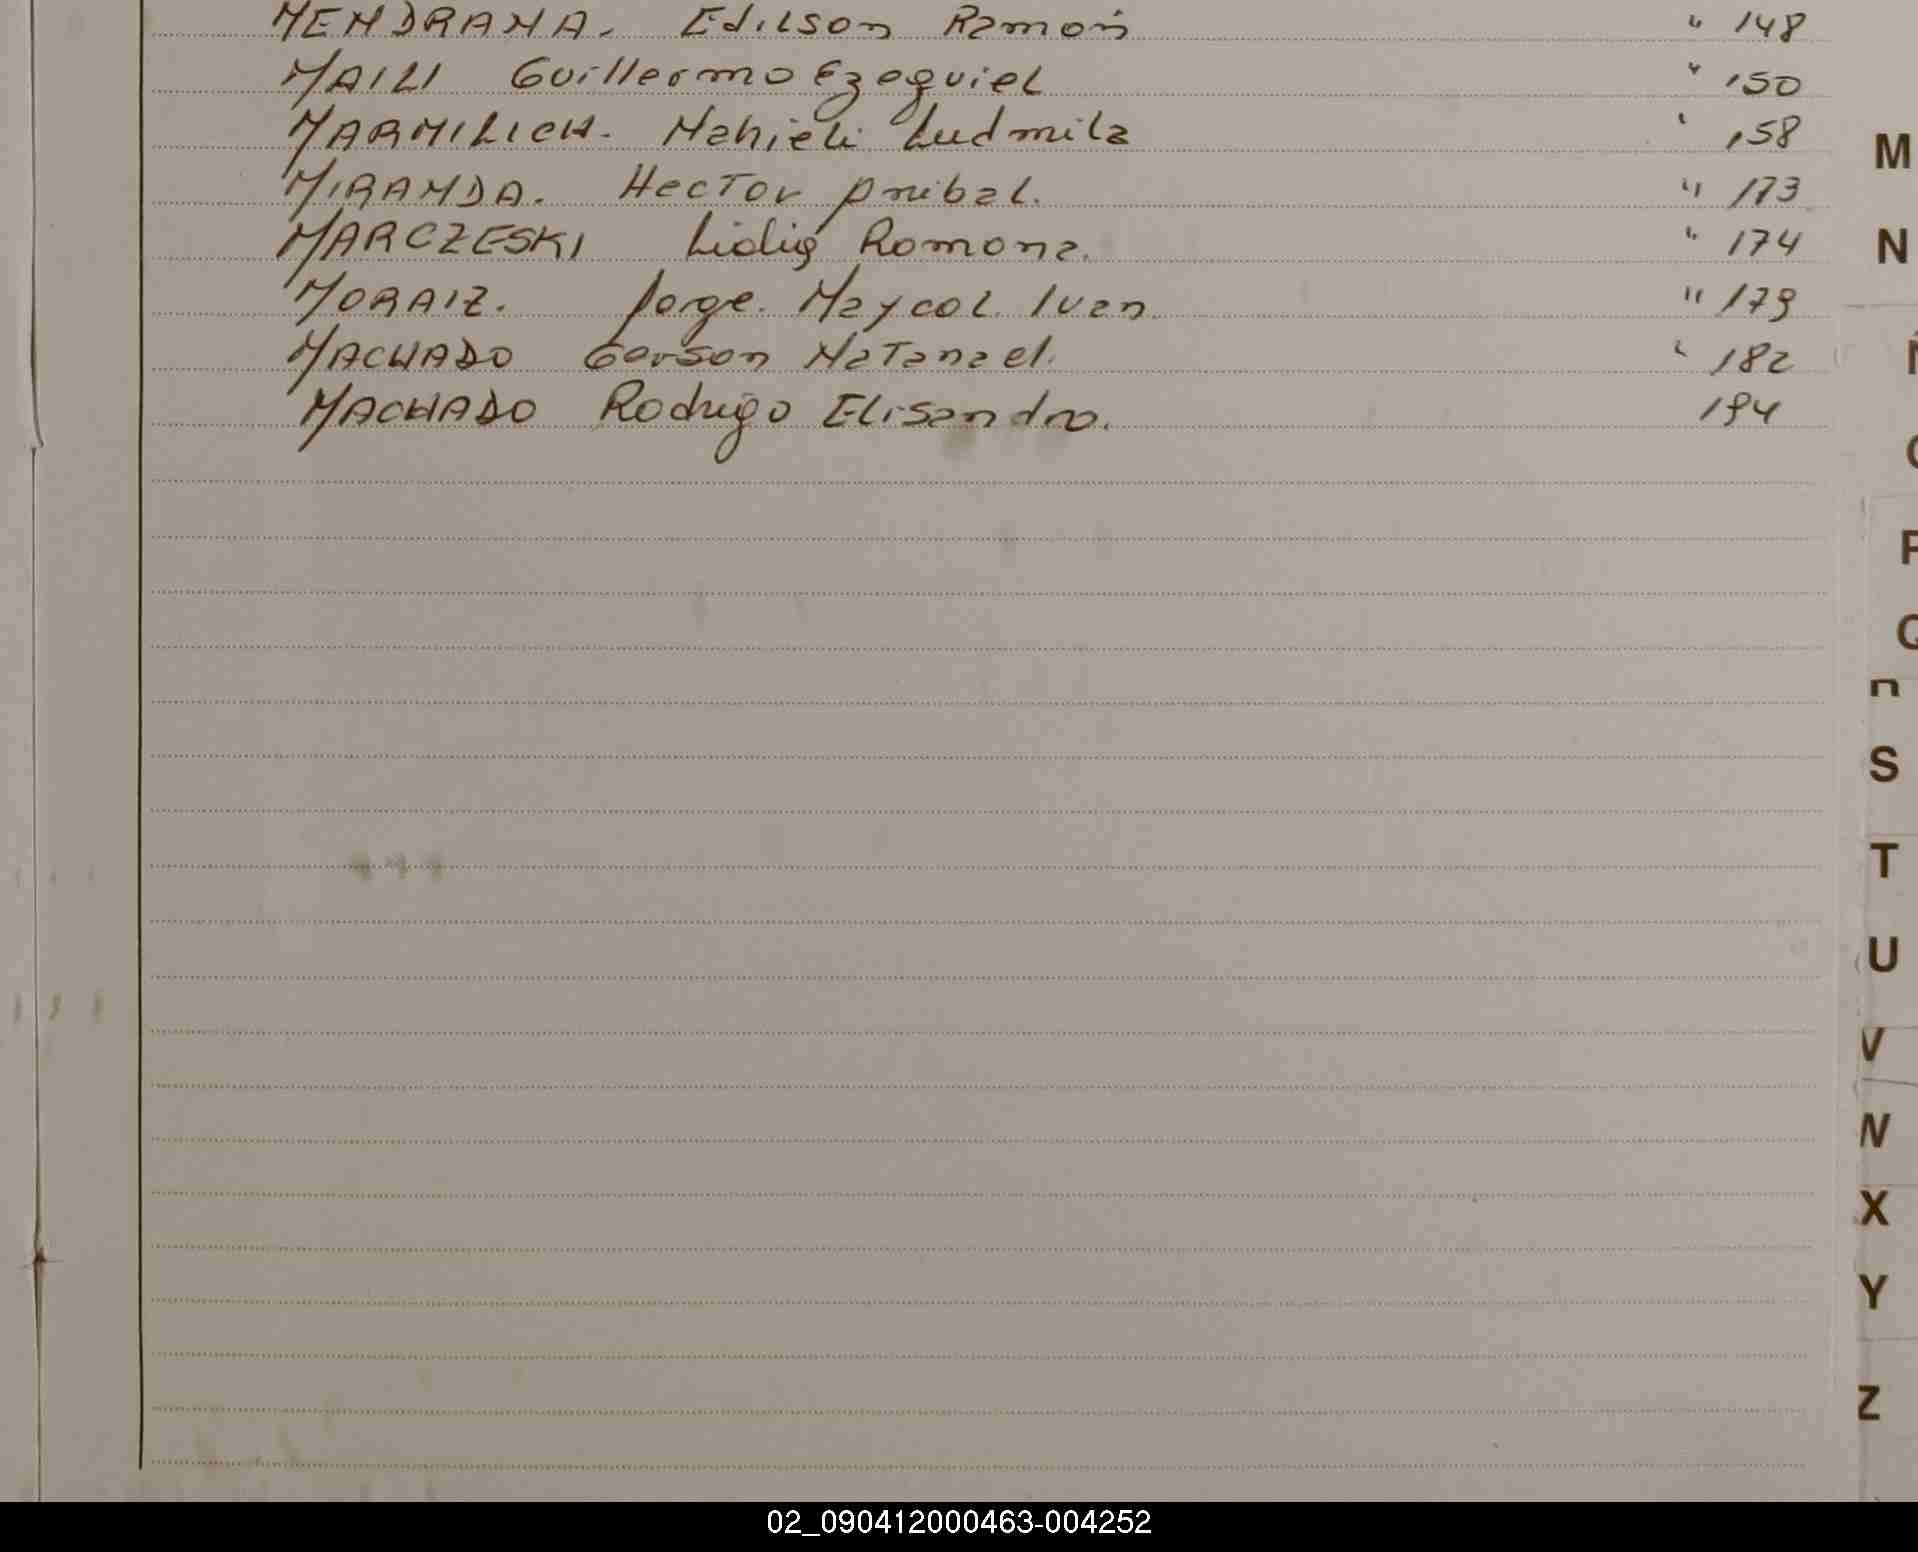 MENDRANA. Edilson Ramón " 148
MAILI Guillermo Ezequiel " 150
MARMILICH. Nahieli Ludmila " 158
MIRANDA. Hector Anibal. " 173
MARCZESKI Lidia Romona. " 174
MORAIZ. Jorge. Maycol. Ivan. " 179
MACHADO Gerson Natanael. " 182
MACHADO Rodrigo Elisandro. 194
M
N
Q
S
T
U
V
W
X
Y
Z
02_090412000463-004252